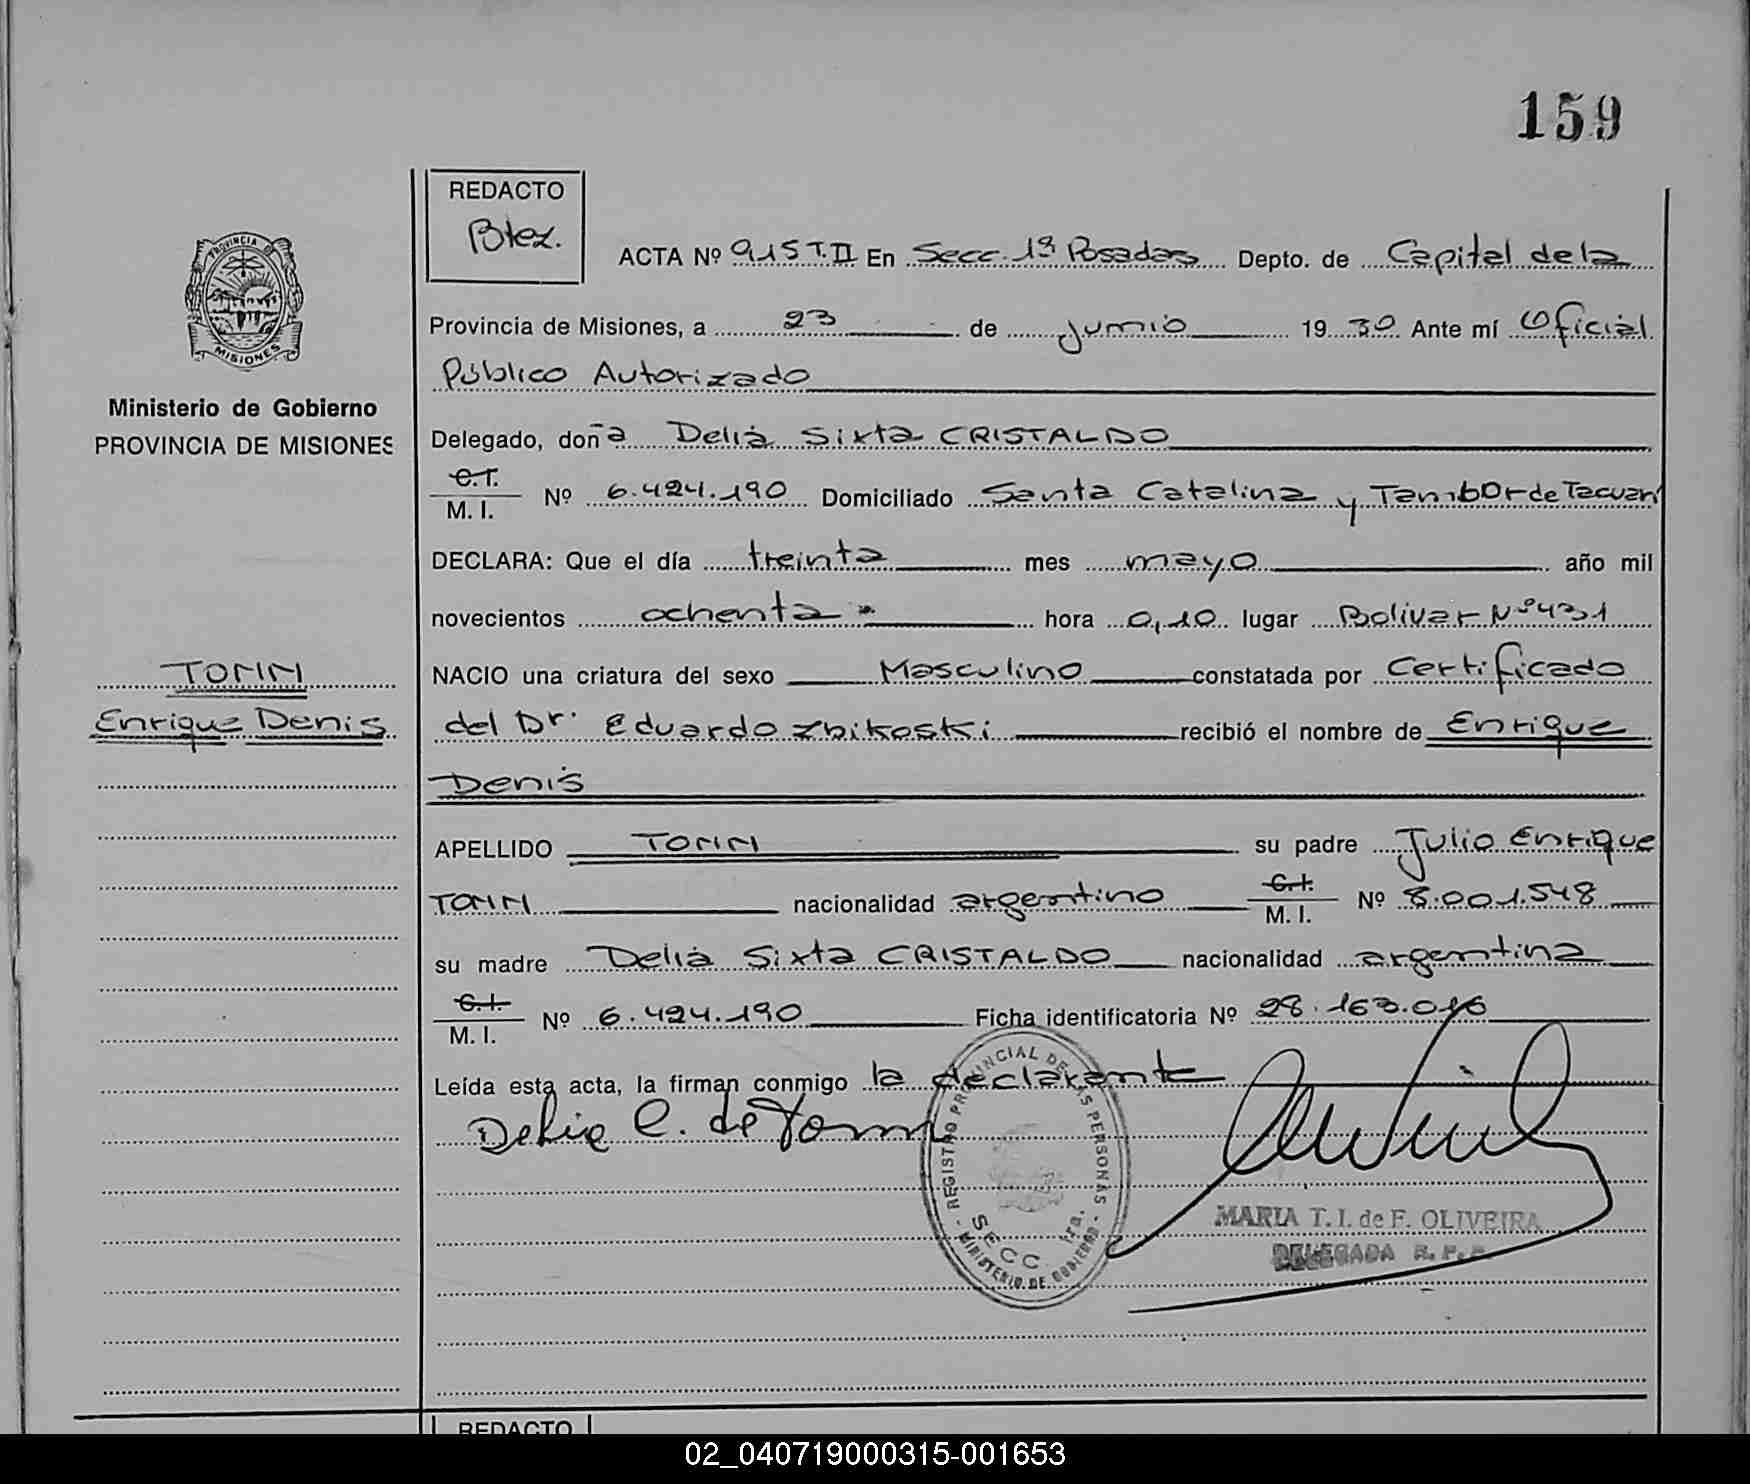 159
REDACTO
Btez.
ACTA Nº 915 T.II En Secc. 1ª Posadas Depto. de Capital de la
Provincia de Misiones, a 23 de junio 19 80 Ante mí Oficial
Público Autorizado
PROVINCIA DE
MISIONES
Ministerio de Gobierno
PROVINCIA DE MISIONES
Delegado, doña Delia Sixta CRISTALDO
C.I.
M. I. Nº 6.424.190 Domiciliado Santa Catalina y Tambor de Tacuarí
DECLARA: Que el día treinta mes mayo año mil
novecientos ochenta hora 0,10 lugar Bolívar Nº 431
TONN
Enrique Denis
NACIO una criatura del sexo Masculino constatada por Certificado
del Dr. Eduardo Zbikoski recibió el nombre de Enrique
Denis
APELLIDO TONN su padre Julio Enrique
TONN nacionalidad argentino C.I.
M. I. Nº 8.001.548
su madre Delia Sixta CRISTALDO nacionalidad argentina
C.I.
M. I. Nº 6.424.190 Ficha identificatoria Nº 28.163.016
Leída esta acta, la firman conmigo la declarante
Delia C. de Tonn
REGISTRO PROVINCIAL DE LAS PERSONAS
SECC. 1ra.
MINISTERIO DE GOBIERNO
MARIA T. I. de F. OLIVEIRA
DELEGADA R. P.
REDACTO
02_040719000315-001653